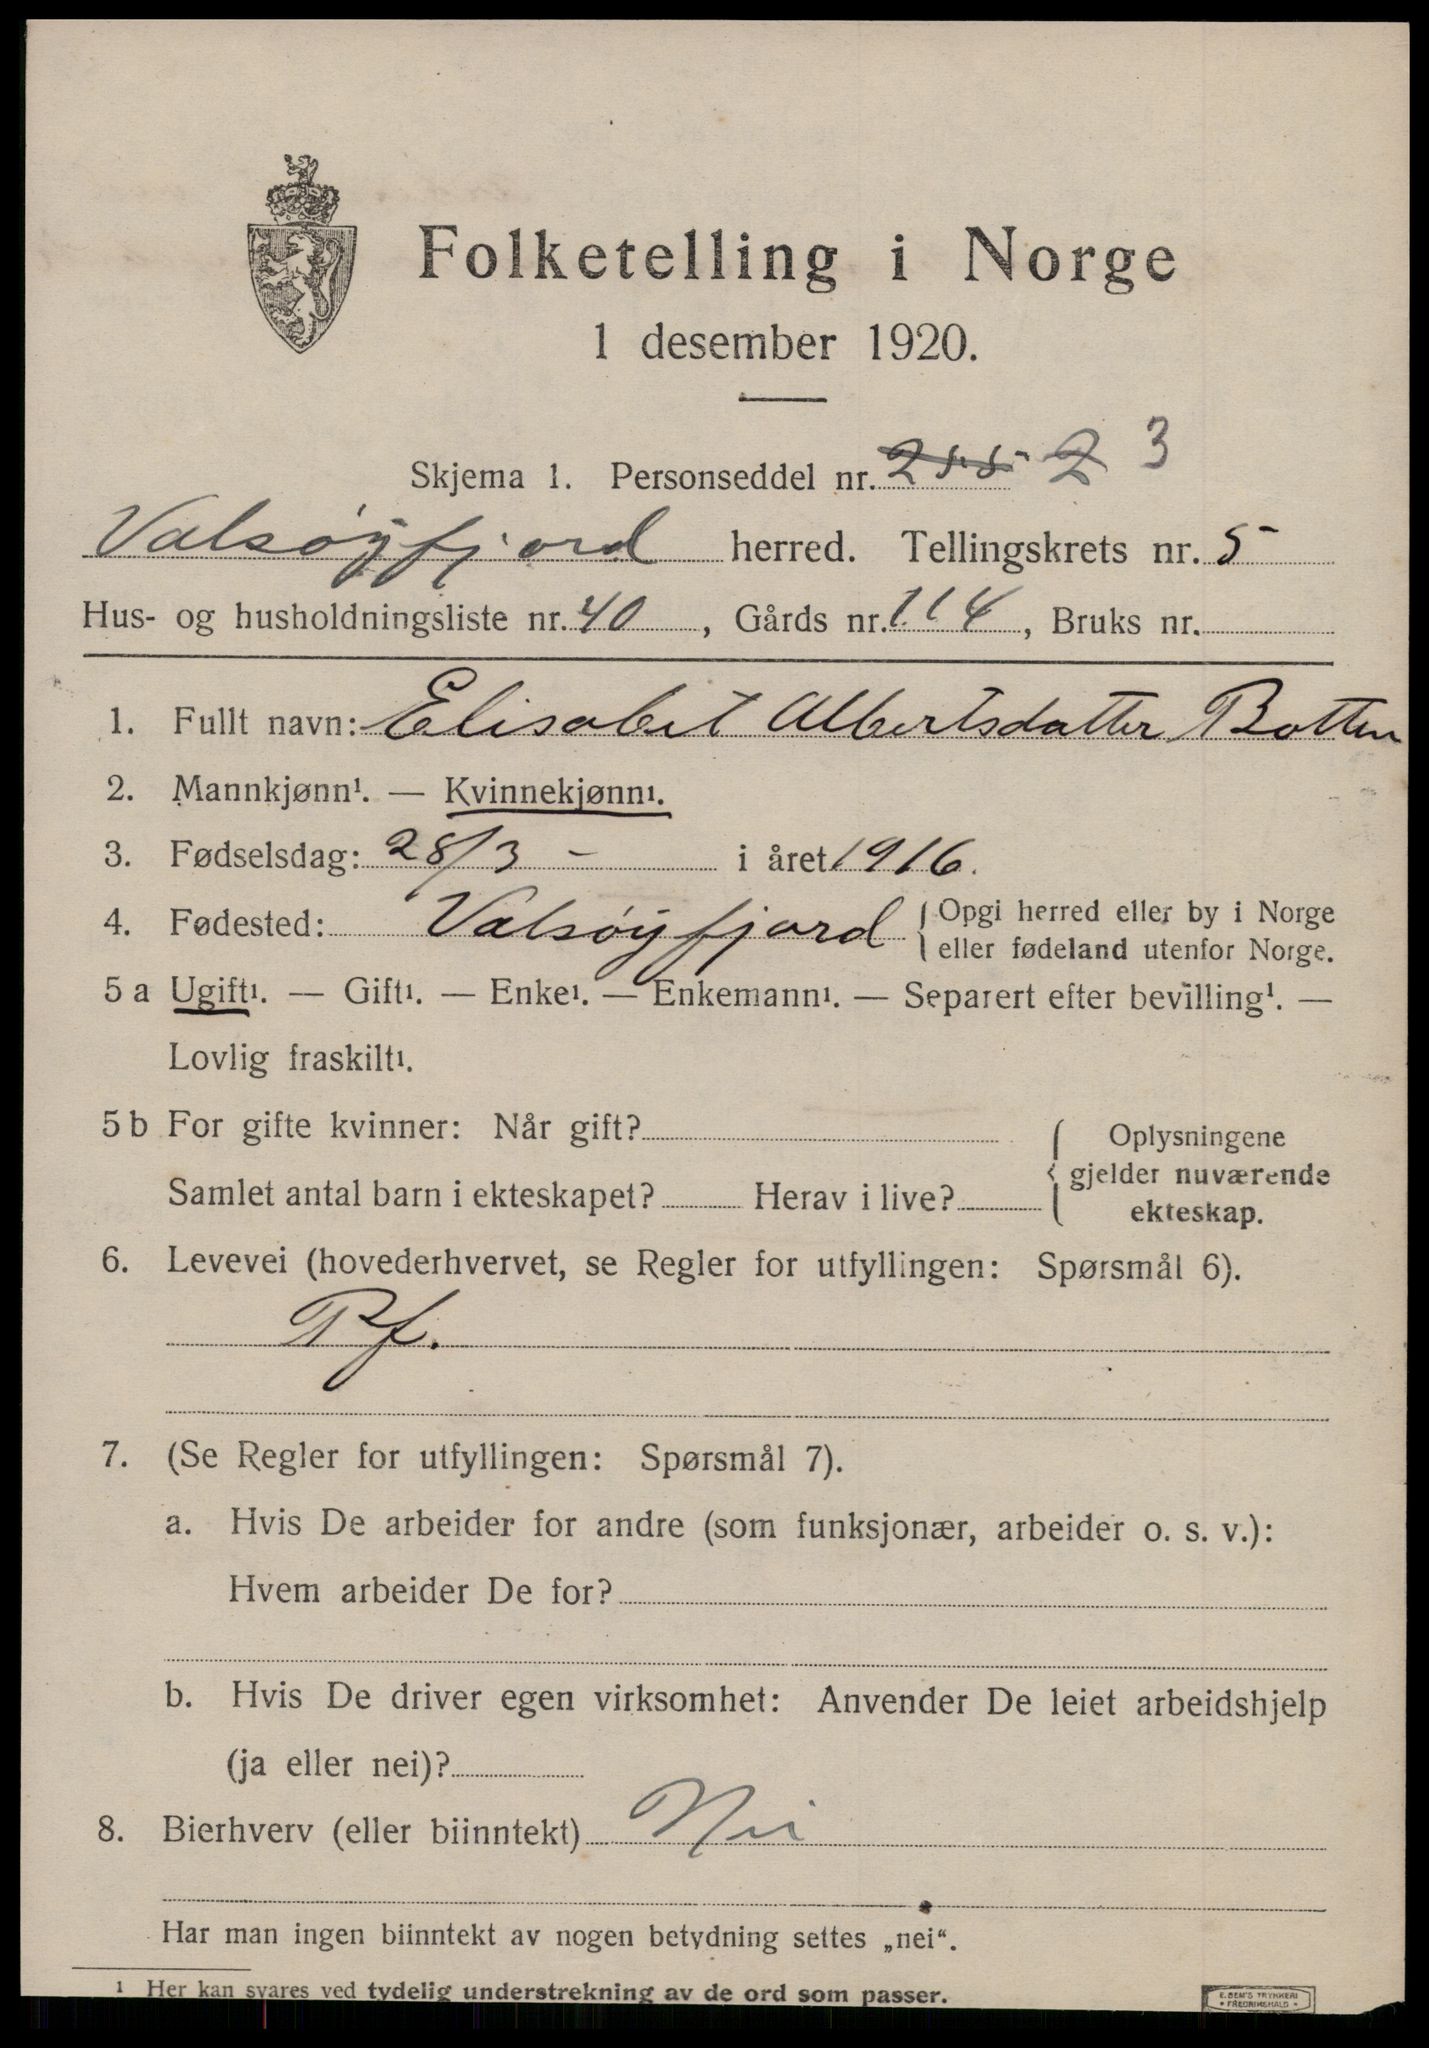 Folketelling i Norge
1 desember 1920.
Skjema 1. Personseddel nr. 255 2 3
Valsøyfjord herred. Tellingskrets nr. 5
Hus- og husholdningsliste nr. 40, Gårds nr. 114, Bruks nr.
1. Fullt navn: Elisabet Albertsdatter Botten
2. Mannkjønn¹. — Kvinnekjønn¹.
3. Fødselsdag: 28/3 – i året 1916.
4. Fødested: Valsøyfjord { Opgi herred eller by i Norge
eller fødeland utenfor Norge.
5 a Ugift¹. — Gift¹. — Enke¹. — Enkemann¹. — Separert efter bevilling¹. —
Lovlig fraskilt¹.
5 b For gifte kvinner: Når gift? { Oplysningene
gjelder nuværende
Samlet antal barn i ekteskapet? Herav i live? ekteskap.
6. Levevei (hovederhvervet, se Regler for utfyllingen: Spørsmål 6).
Pf.
7. (Se Regler for utfyllingen: Spørsmål 7).
a. Hvis De arbeider for andre (som funksjonær, arbeider o. s. v.):
Hvem arbeider De for?
b. Hvis De driver egen virksomhet: Anvender De leiet arbeidshjelp
(ja eller nei)?
8. Bierhverv (eller biinntekt) Nei
Har man ingen biinntekt av nogen betydning settes „nei“.
¹ Her kan svares ved tydelig understrekning av de ord som passer.
E. SEM'S TRYKKERI
* FREDRIKSHALD *